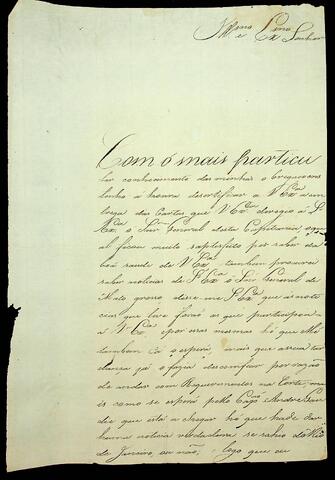 Ill.mo e Ex.mo Senhor
Com o mais particu
lar conhecimento das minhas obrigaçoens
tenho á honra de sertificar a V Ex.ca a en
trega das Cartas que V Ex.ca deregio á S.
Ex.ca o Snr General desta Capitania o qu
al ficou muito saptisfeito por saber da
boá saude de V Ex.ca tambem procurei
saber noticias de S Ex.ca o Snr General de
Mato groço disse me S Ex.ca que as noti
cias que teve fará as que partecipou
a V Ex.ca por esas mesmas hó que Me
tambem Cá o espera mais que a
dança já o fazia descomfiar por razão
de andar com Requerimentos na Corte, m
is como se espera pello Cap.m Andre
die que está a chegar hó que hade dar
huma noticia verdadeira se sahio do Rio
de Janeiro, ou não; logo que eu